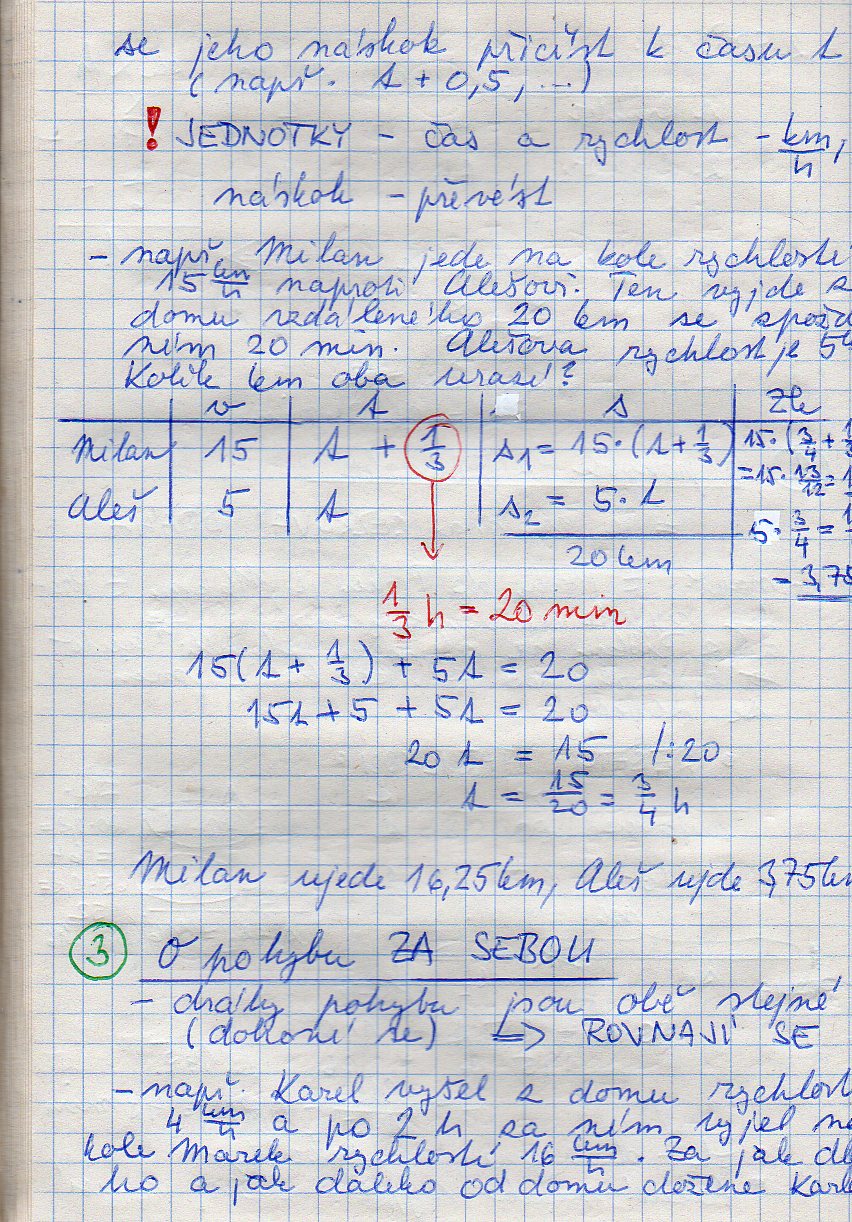 se jeho náskok přičíst k času t
(např. t + 0,5, ...)
! JEDNOTKY - čas a rychlost - km/h,
náskok - převést
- např. Milan jede na kole rychlostí
15 km/h naproti Alešovi. Ten vyjde z
domu vzdáleného 20 km se zpožd
ním 20 min. Alešova rychlost je 5
Kolik km oba urazí?
v t s Zk
Milan 15 t + 1/3 s1 = 15·(t + 1/3) 15·(3/4 + 1/3
= 15·13/12 =
Aleš 5 t s2 = 5·t 5·3/4 =
20 km
= 3,75
1/3 h = 20 min
15(t + 1/3) + 5t = 20
15t + 5 + 5t = 20
20 t = 15 /:20
t = 15/20 = 3/4 h
Milan ujede 16,25 km, Aleš ujde 3,75 km
3 O pohybu ZA SEBOU
- dráhy pohybu jsou obě stejné
(dohoní se) => ROVNAJÍ SE
- např. Karel vyšel z domu rychlost
4 km/h a po 2 h za ním vyjel na
kole Marek rychlostí 16 km/h. Za jak dl
ho a jak daleko od domu dožene Karl